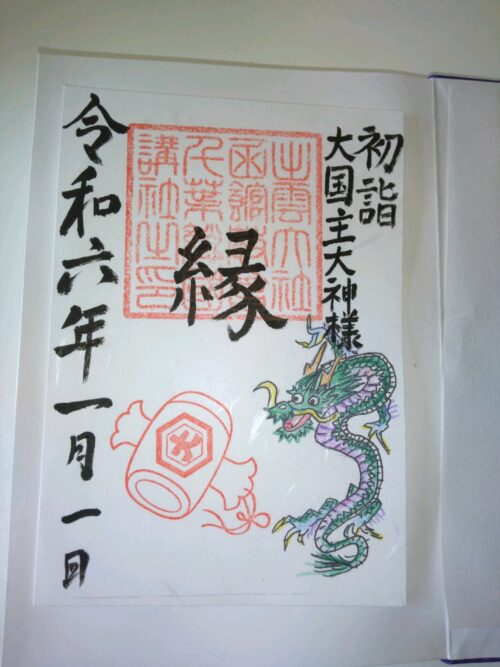 初詣
大国主大神様
出雲大社
講社之印
縁
令和六年一月一日